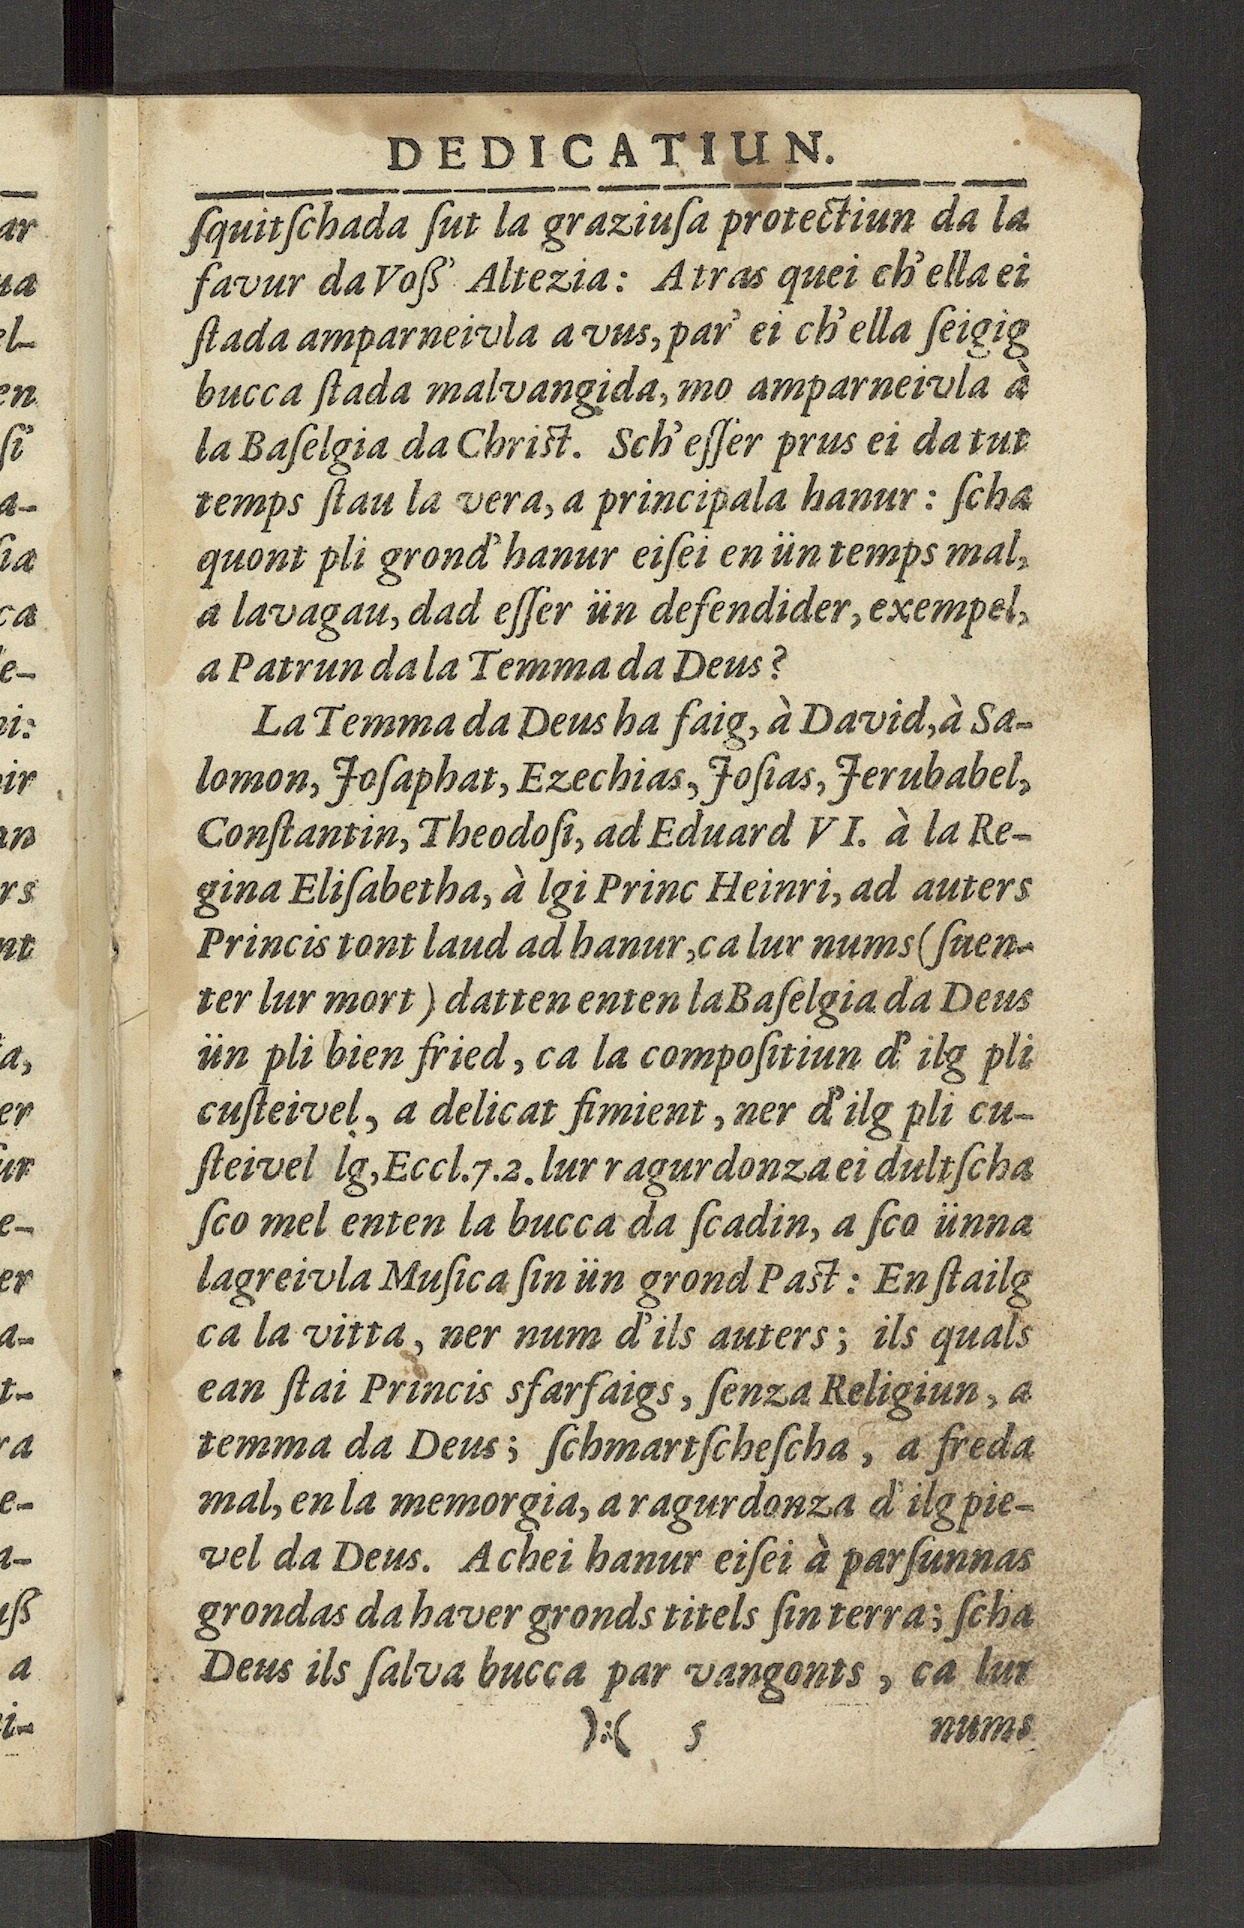 DEDICATIUN.
ſquitſchada ſut la graziuſa protectiun da la
favur da Voß' Altezia: Atras quei ch'ella ei
ſtada amparneivla a vus, par' ei ch'ella ſeigig
bucca ſtada malvangida, mo amparneivla à
la Baſelgia da Chriſt. Sch'eſſer prus ei da tut
temps ſtau la vera, a principala hanur: ſcha
quont pli grond' hanur eiſei en ün temps mal,
a lavagau, dad eſſer ün defendider, exempel,
a Patrun da la Temma da Deus?
La Temma da Deus ha faig, à David, à Sa-
lomon, Joſaphat, Ezechias, Joſias, Jerubabel,
Conſtantin, Theodoſi, ad Eduard VI. à la Re-
gina Eliſabetha, à lgi Princ Heinri, ad auters
Princis tont laud ad hanur, ca lur nums (ſuen-
ter lur mort) datten enten la Baſelgia da Deus
ün pli bien fried, ca la compoſitiun d' ilg pli
cuſteivel, a delicat fimient, ner d'ilg pli cu-
ſteivel lg, Eccl. 7. 2. lur ragurdonza ei dultſcha
ſco mel enten la bucca da ſcadin, a ſco ünna
lagreivla Muſica ſin ün grond Paſt: Enſtailg
ca la vitta, ner num d'ils auters; ils quals
ean ſtai Princis sfarfaigs, ſenza Religiun, a
temma da Deus; ſchmartſcheſcha, a freda
mal, en la memorgia, a ragurdonza d' ilg pie-
vel da Deus. A chei hanur eiſei à parſunnas
grondas da haver gronds titels ſin terra; ſcha
Deus ils ſalva bucca par vangonts, ca lur
):( 5 nums